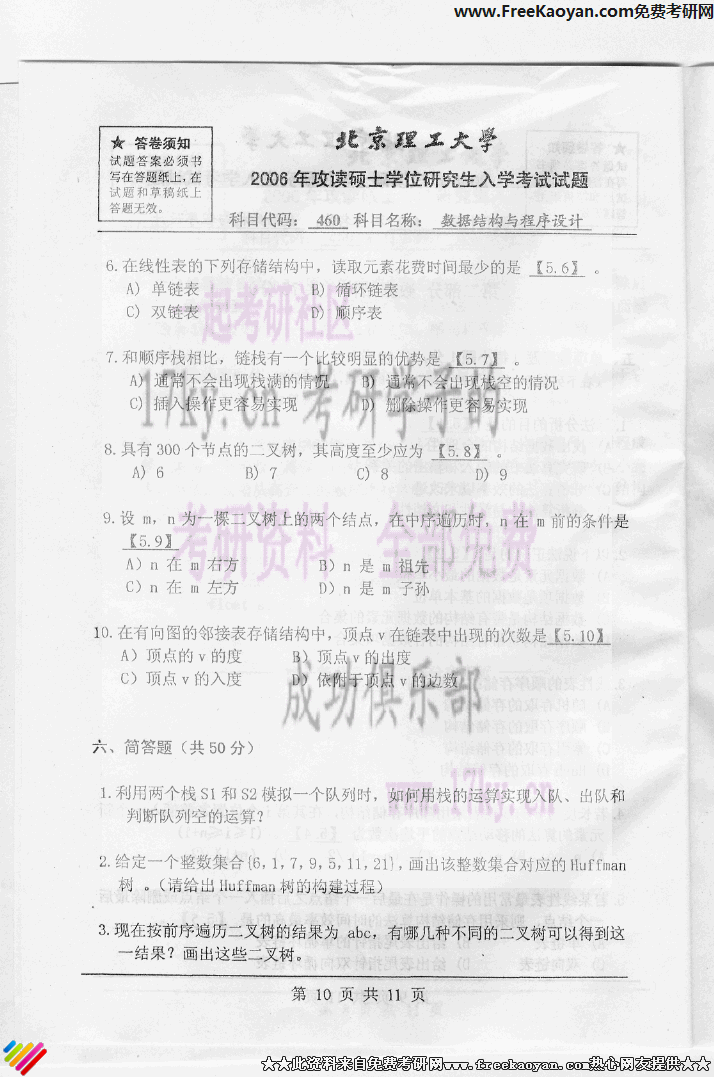 www.FreeKaoyan.com免费考研网
★ 答卷须知
试题答案必须书
写在答题纸上,在
试题和草稿纸上
答题无效。
北京理工大学
2006 年攻读硕士学位研究生入学考试试题
科目代码: 460 科目名称: 数据结构与程序设计
6.在线性表的下列存储结构中,读取元素花费时间最少的是 【5.6】 。
A) 单链表 B) 循环链表
C) 双链表 D) 顺序表
起考研社区
7.和顺序栈相比,链栈有一个比较明显的优势是 【5.7】 。
A) 通常不会出现栈满的情况 B) 通常不会出现栈空的情况
C) 插入操作更容易实现 D) 删除操作更容易实现
17ky.cn 考研学子的
8.具有 300 个节点的二叉树,其高度至少应为 【5.8】 。
A) 6 B) 7 C) 8 D) 9
9.设 m, n 为一棵二叉树上的两个结点,在中序遍历时, n 在 m 前的条件是
【5.9】
考研资料 全部免费
A) n 在 m 右方 B) n 是 m 祖先
C) n 在 m 左方 D) n 是 m 子孙
10.在有向图的邻接表存储结构中,顶点 v 在链表中出现的次数是【5.10】
A) 顶点的 v 的度 B) 顶点 v 的出度
C) 顶点 v 的入度 D) 依附于顶点 v 的边数
成功俱乐部
六、简答题(共 50 分)
www.17ky.cn
1.利用两个栈 S1 和 S2 模拟一个队列时,如何用栈的运算实现入队、出队和
判断队列空的运算?
2.给定一个整数集合{6,1,7,9,5,11,21},画出该整数集合对应的 Huffman
树 。(请给出 Huffman 树的构建过程)
3.现在按前序遍历二叉树的结果为 abc,有哪几种不同的二叉树可以得到这
一结果?画出这些二叉树。
第 10 页 共 11 页
★★此资料来自免费考研网www.freekaoyan.com热心网友提供★★